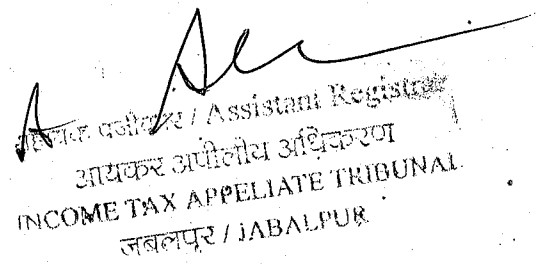 सहायक पंजीकार / Assistant Registrar
आयकर अपीलीय अधिकरण
INCOME TAX APPELIATE TRIBUNAL
जबलपुर / JABALPUR